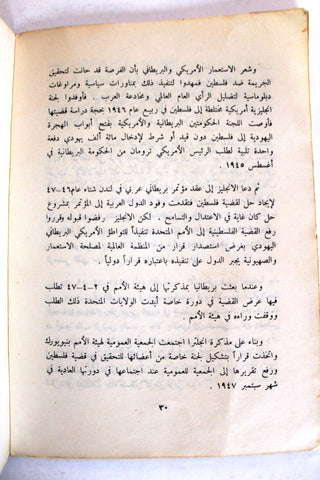 وشعر الاستعمار الأمريكي والبريطاني بأن الفرصة قد حانت لتحقيق
الجريمة ضد فلسطين فمهدوا لتنفيذ ذلك بمناورات سياسية ومراوغات
دبلوماسية لتضليل الرأي العام العالمي ومخادعة العرب . فأوفدوا لجنة
انجليزية أمريكية مختلطة إلى فلسطين في ربيع عام ١٩٤٦ بحجة دراسة قضيتها
فأوصت اللجنة الحكومتين البريطانية والأمريكية بفتح أبواب الهجرة
اليهودية إلى فلسطين دون قيد أو شرط لإدخال مائة ألف يهودي دفعة
واحدة تلبية لطلب الرئيس الأمريكي ترومان من الحكومة البريطانية في
أغسطس ١٩٤٥ .
ثم دعا الانجليز إلى عقد مؤتمر بريطاني عربي في لندن شتاء عام ٤٦-٤٧
لإيجاد حل لقضية فلسطين فتقدمت وفود الدول العربية إلى المؤتمر بمشروع
حل كان غاية في الاعتدال والتسامح . لكن الانجليز رفضوا قبوله وقرروا
رفع القضية الفلسطينية إلى الأمم المتحدة تنفيذاً للتواطؤ الأمريكي البريطاني
اليهودي بغرض استصدار قرار من المنظمة العالمية لمصلحة الاستعمار
والصهيونية يجبر الدول على تنفيذه باعتباره قراراً دولياً .
وعندما بعثت بريطانيا بمذكرتها إلى هيئة الأمم في ٢-٤-٤٧ تطلب
فيها عرض القضية في دورة خاصة أيدت الولايات المتحدة ذلك الطلب
ووقفت وراءه في هيئة الأمم .
وبناء على مذكرة انجلترا اجتمعت الجمعية العمومية لهيئة الأمم بنيويورك
واتخذت قراراً بتشكيل لجنة خاصة من أعضائها للتحقيق في قضية فلسطين
ورفع تقريرها إلى الجمعية العمومية عند اجتماعها في دورتها العادية في
شهر سبتمبر ١٩٤٧ .
٣٠